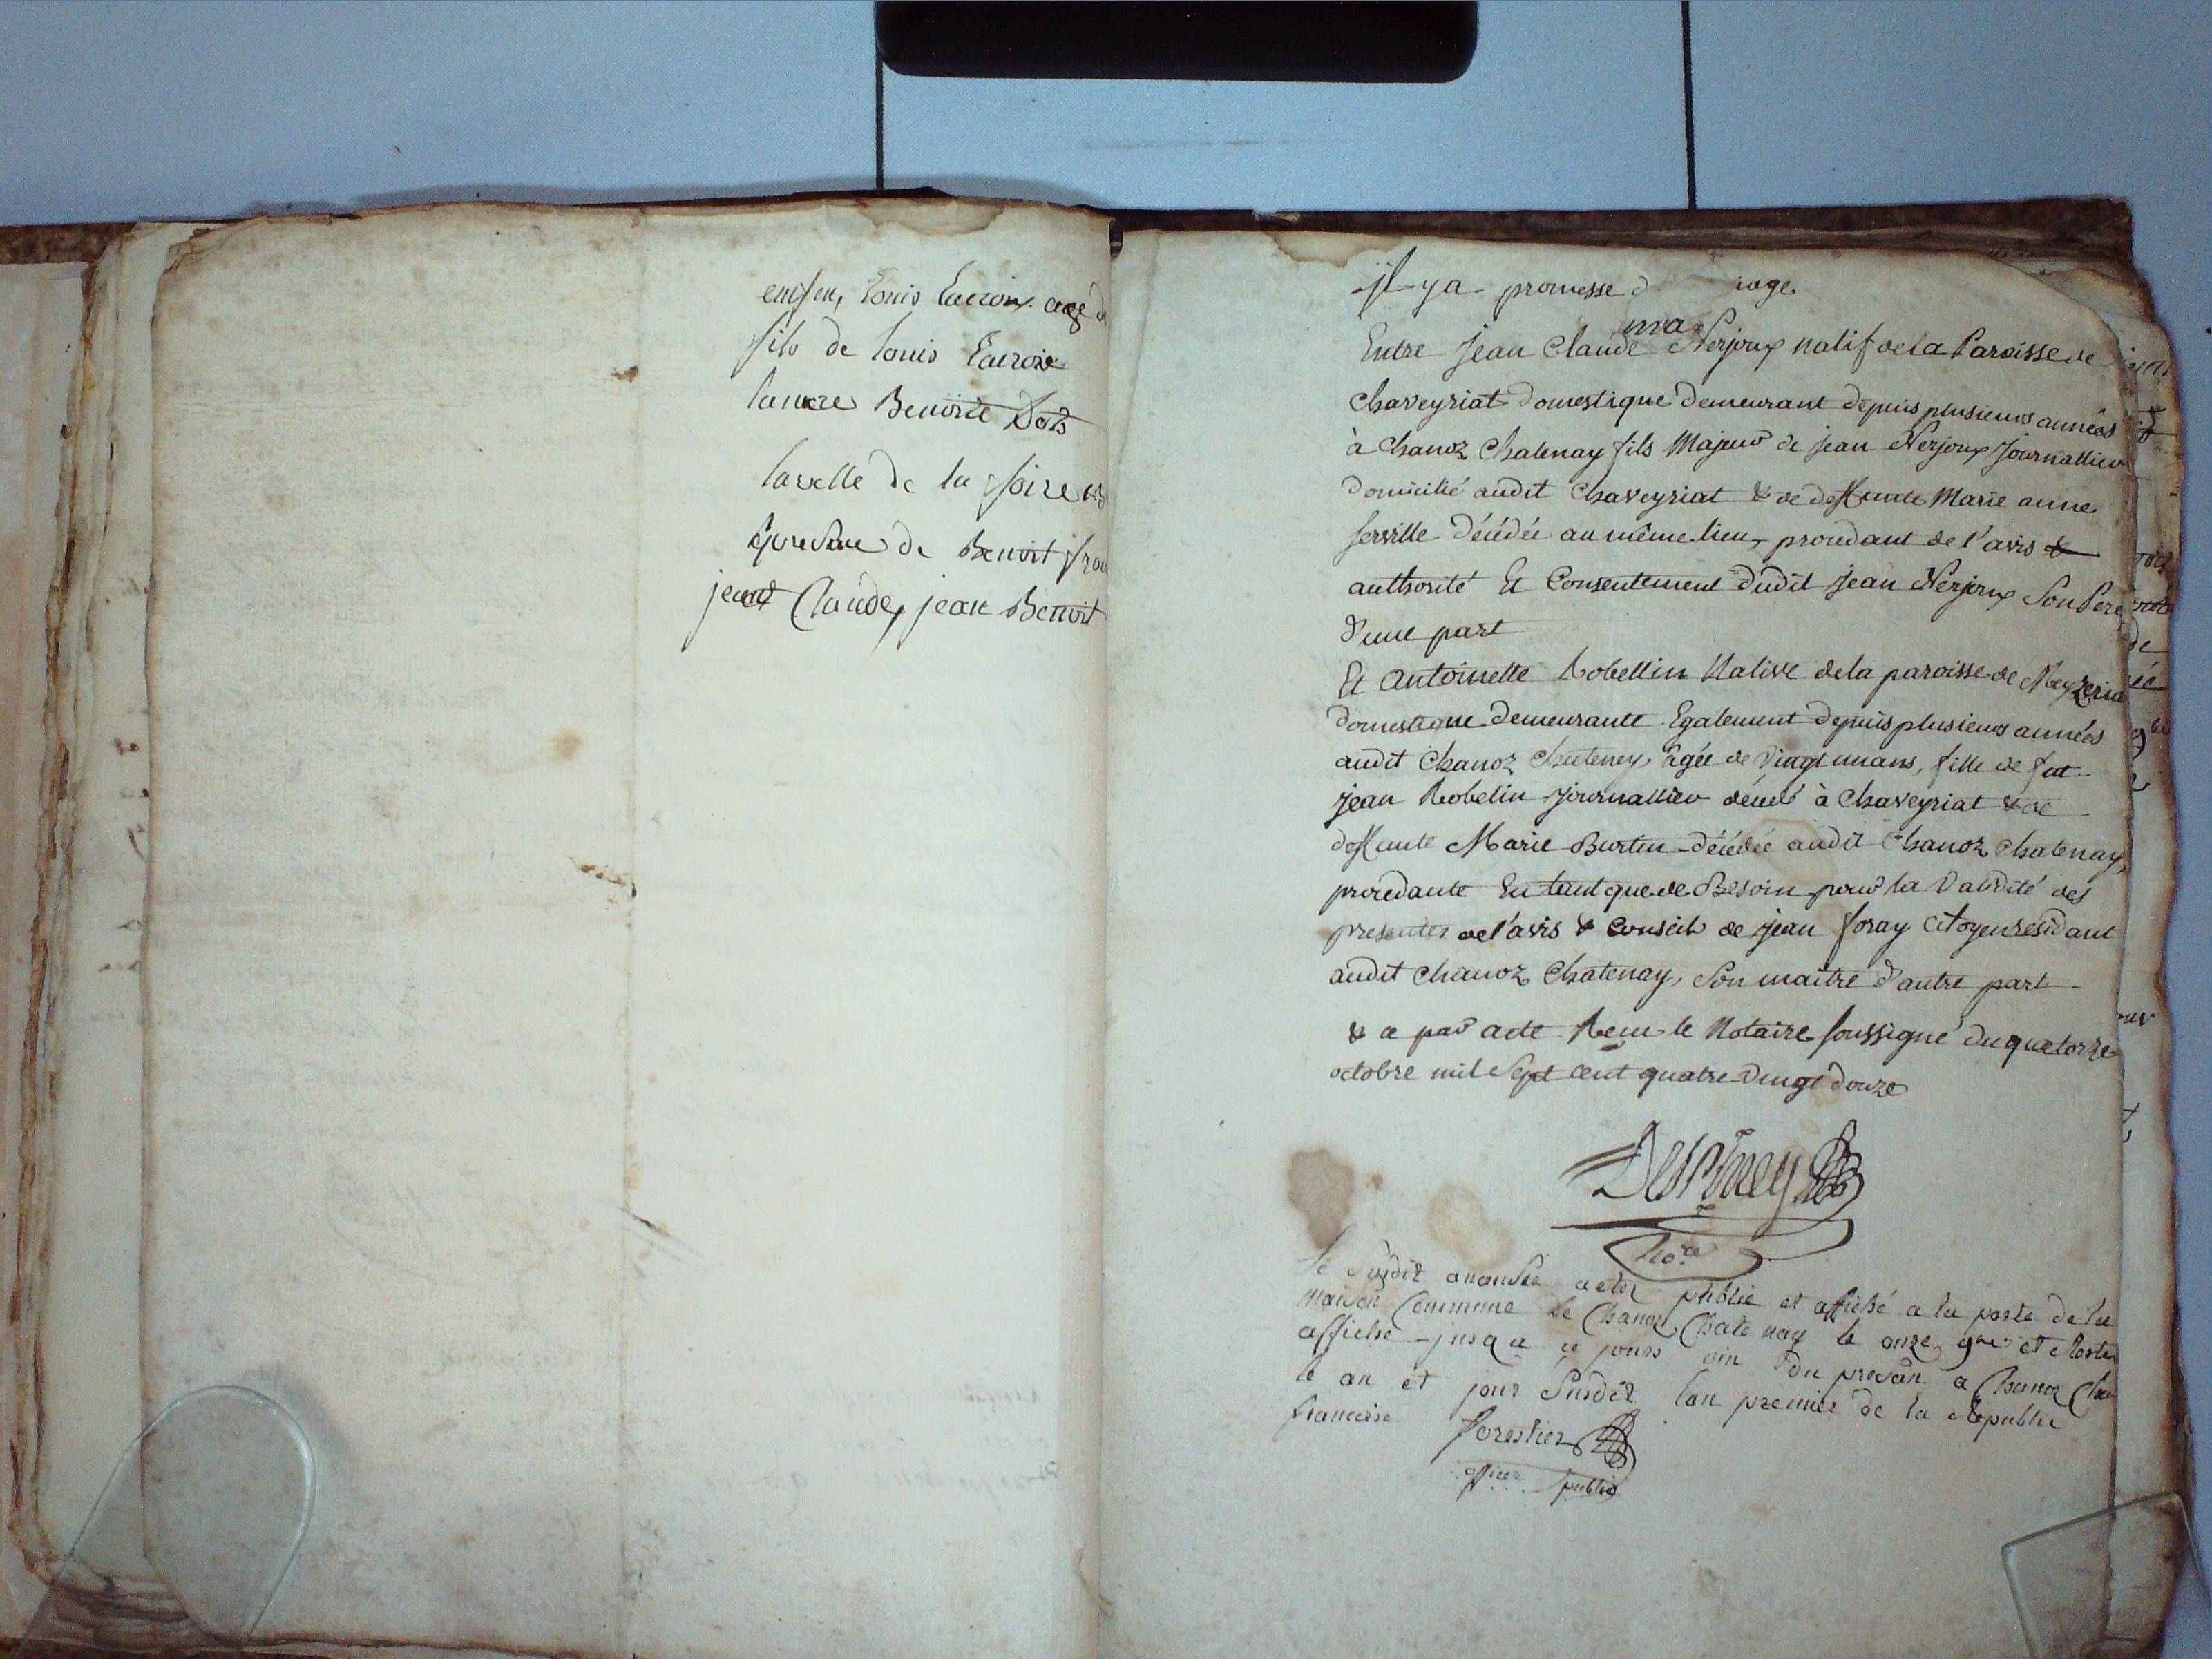 enfen, louis lacroix agé de
fils de louis lacroix
lamere Benoite
lavelle de la foire
de Benoit
jean Claude, jean Benoit
il y a promesse d iage
ma
Entre jean Claude Nerjoux natif de la Paroisse de
Chaveyriat domestique demeurant depuis plusieurs années
à Chanoz Chatenay fils Majeur de jean Nerjoux journallier
domicilié audit Chaveyriat & de deffunte Marie anne
ferville décédée au même lieu, procedant de l'avis &
authorité Et Consentement dudit jean Nerjoux Son Pere
d'une part
Et antoinette Robellin Native de la paroisse de Mezeria
domestique demeurante Egalement depuis plusieurs années
audit Chanoz Chateney, âgée de vingt un ans, fille de feu
jean Robelin journallier décédé à Chaveyriat & de
deffunte Marie Burtin décédée audit Chanoz Chatenay,
procedante En tant que de Besoin pour la validité des
presentes de l'avis & Conseil de jean foray Citoyen résidant
audit Chanoz Chatenay, Son maitre d'autre part
& a par acte Recu le Notaire soussigné du quatorze
octobre mil Sept cent quatre vingt douze
Desphrey
no.re
le Susdit a eter publie et affiché a la porte de la
maison Commune de Chanoz Chatenay le onze 9bre et Rester
affiche jusqa a ce jours du a Chanoz Cha
le an et jour Susdit lan premier de la Republi
francaise
forestier
officer public